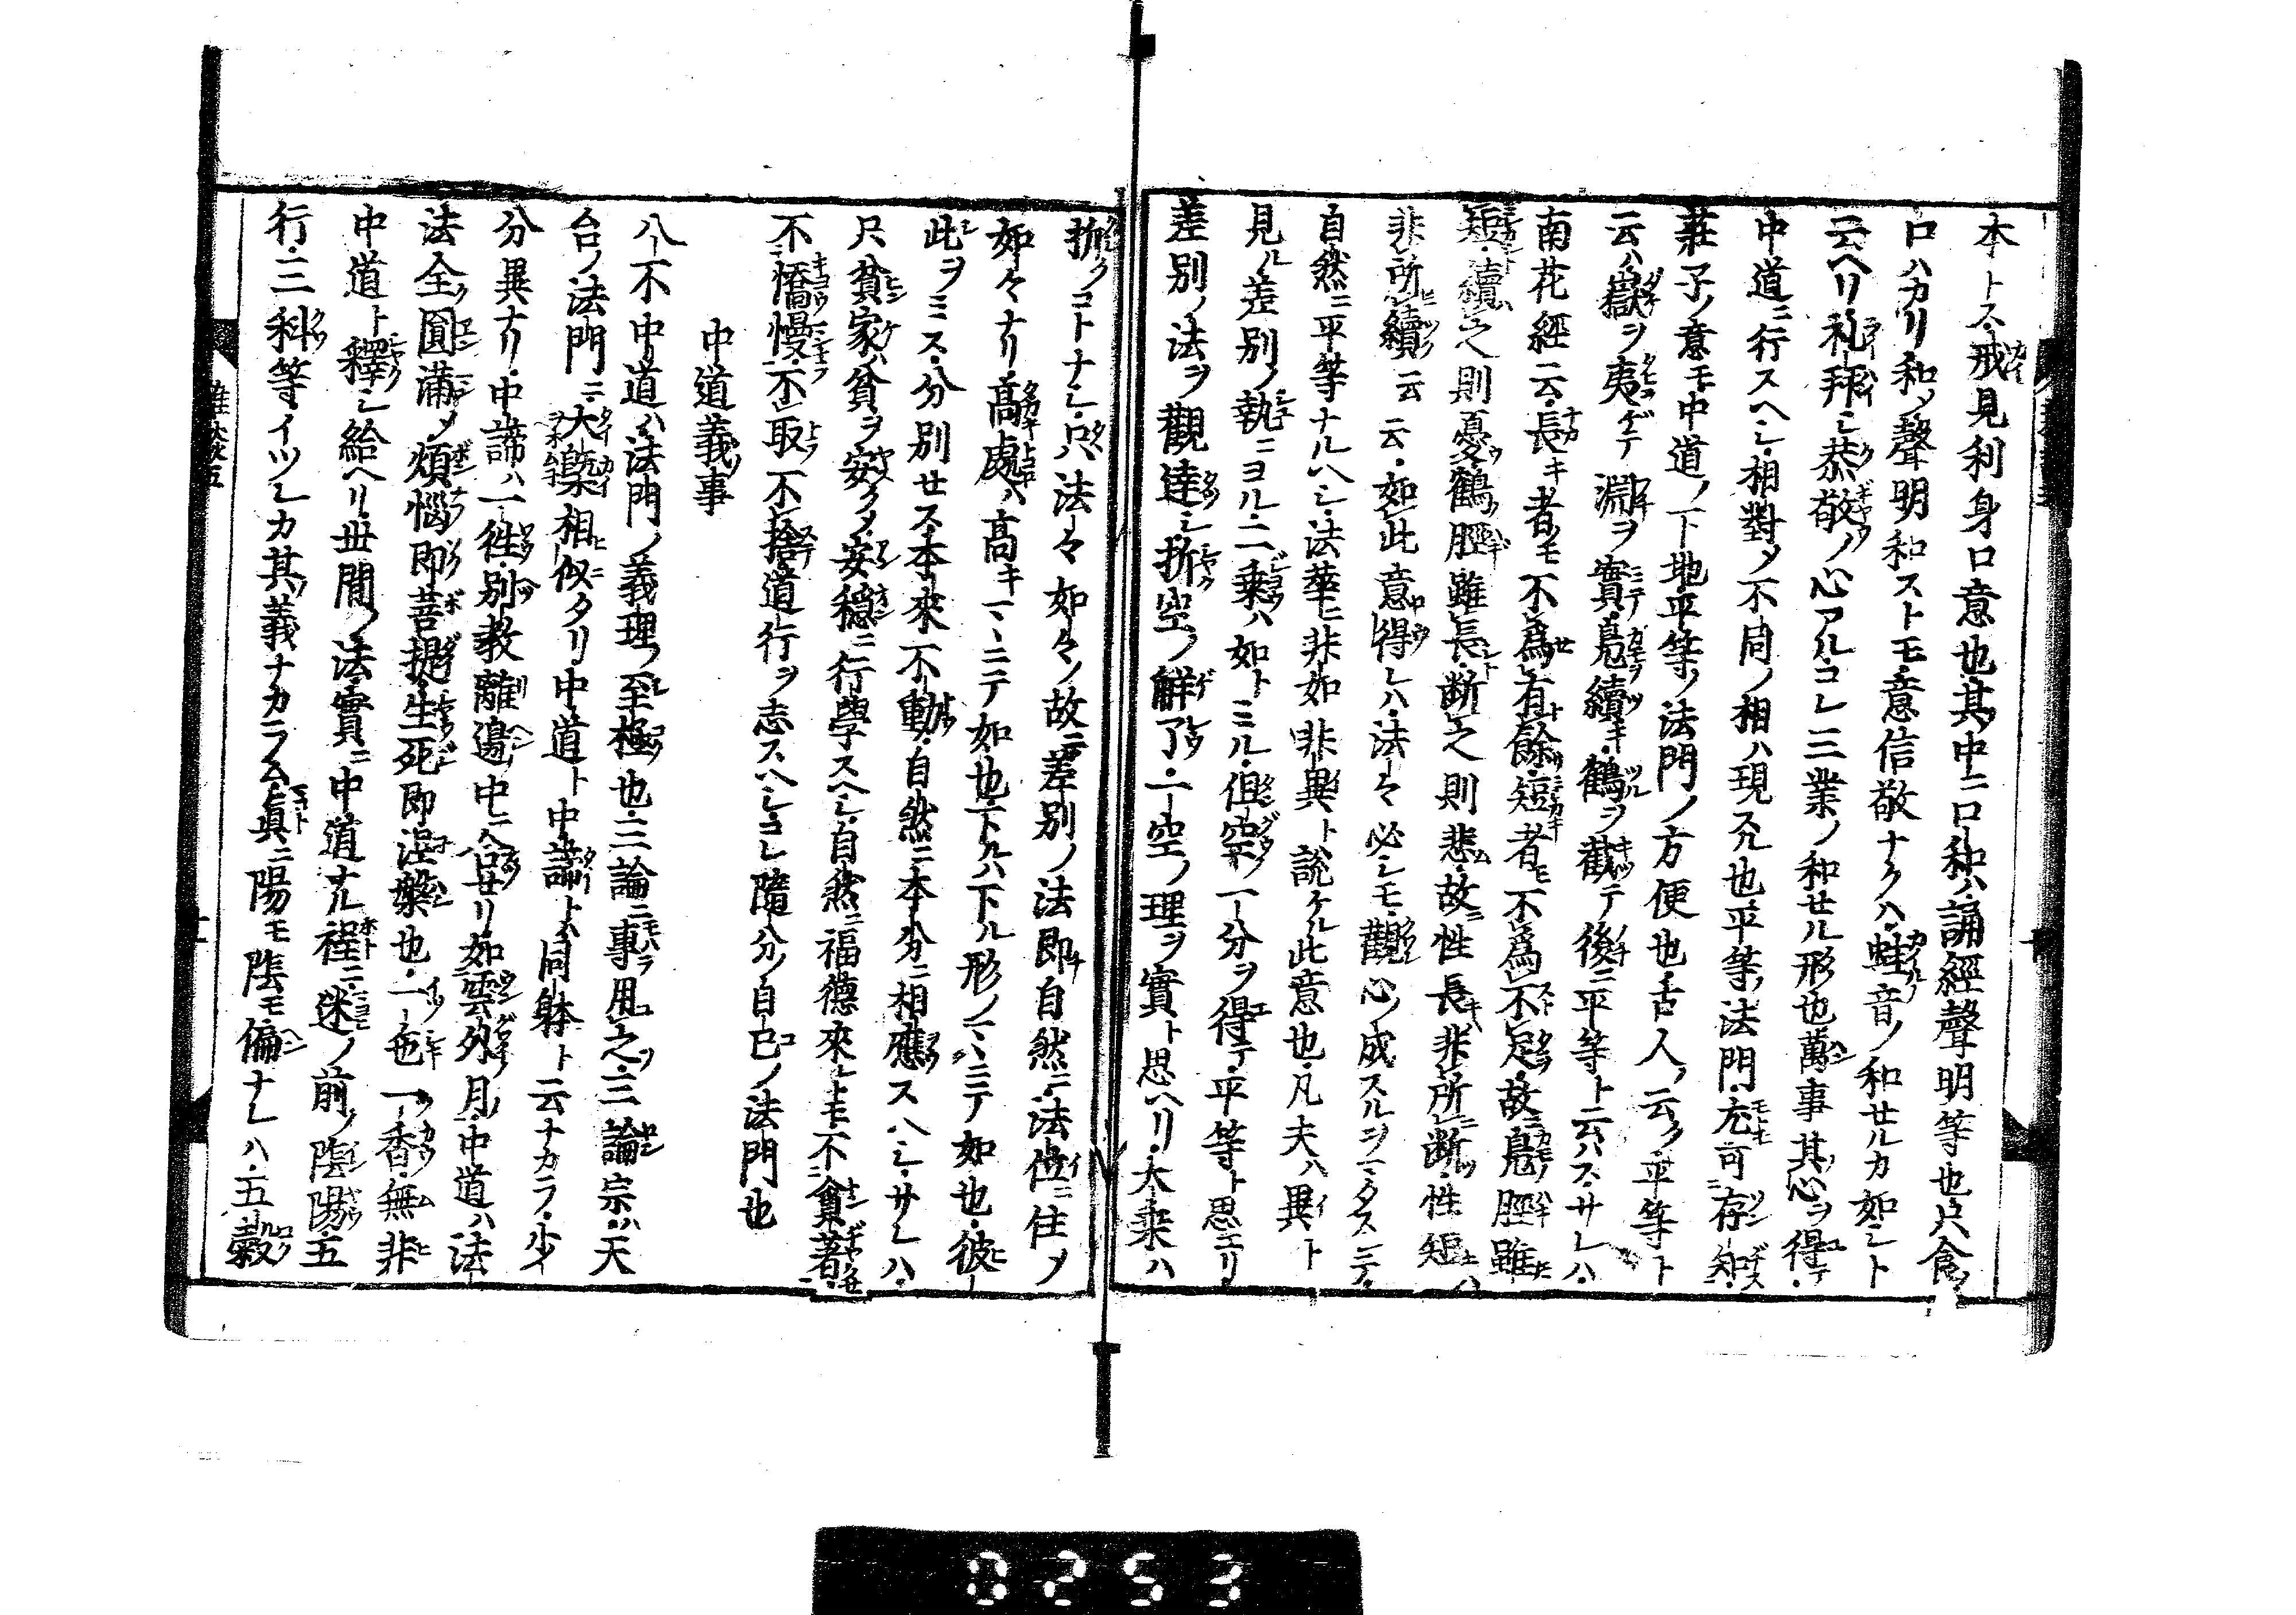 本トス戒見利身口意也其中ニ口和ハ誦經聲明等也只食
口ハカリ和メ聲明和ストモ意信敬ナクハ蛙音ノ和セルカ如シト
云ヘリ礼拜シ恭敬ノ心アルコレ三業ノ和セル形也萬事其心ヲ得テ
中道ニ行スヘシ相對メ不同ノ相ハ現スル也平等法門尤可存知
莊子ノ意モ中道ノ下地平等ノ法門ノ方便也古人ノ云ク平等ト
云ハ嶽ヲ夷ケテ淵ヲ實鳬續キ鶴ヲ截テ後ニ平等ト云ハスサレハ
南花經云長キ者モ不爲有餘短者モ不爲不足故鳬脛雖
短續之則憂鶴脛雖長断之則悲故性長非所断性短
非所續云云如此意得レハ法々必シモ觀心ノ成スルヲマタスニテ
自然ニ平等ナルヘシ法華ニ非如非異ト説ケル此意也凡夫ハ異ト
見ル差別ノ執ニヨル二乘ハ如トミル但空一分ヲ得テ平等ト思エリ
差別ノ法ヲ觀達シ折空ノ解了一空ノ理ヲ實ト思ヘリ大乗ハ
折クコトナシ只法々如々ノ故ニ差別ノ法即自然ニ法位ニ住メ
如々ナリ高處ハ高キマヽニテ如也下ルハ下ル形ノマヽニテ如也彼
此ヲミス分別セス本來不動自然ニ本分ニ相應スヘシサレハ
只貧家ハ貧ヲ安クメ安穏ニ行學スヘシ自然ニ福德來レトモ不貪著
不憍慢不取不捨道行ヲ志スヘシコレ隨分ノ自己ノ法門也
中道義事
八不中道ハ法門ノ義理ノ至極也三論ニ專用之三論宗ハ天
台ノ法門ニ大槩相似タリ中道ト中諦ト同躰ト云ナカラ少
分異ナリ中諦ハ一往別教離邊中ニ合セリ如雲外月中道ハ法
法全圓滿メ煩惱即菩提生死即涅槃也一色一香無非
中道ト釋シ給ヘリ世間ノ法實ニ中道ナル程ニ迷ノ前ノ陰陽五
行三科等イツレカ其義ナカラム眞ニ陽モ陰モ偏ナレハ五穀
0253